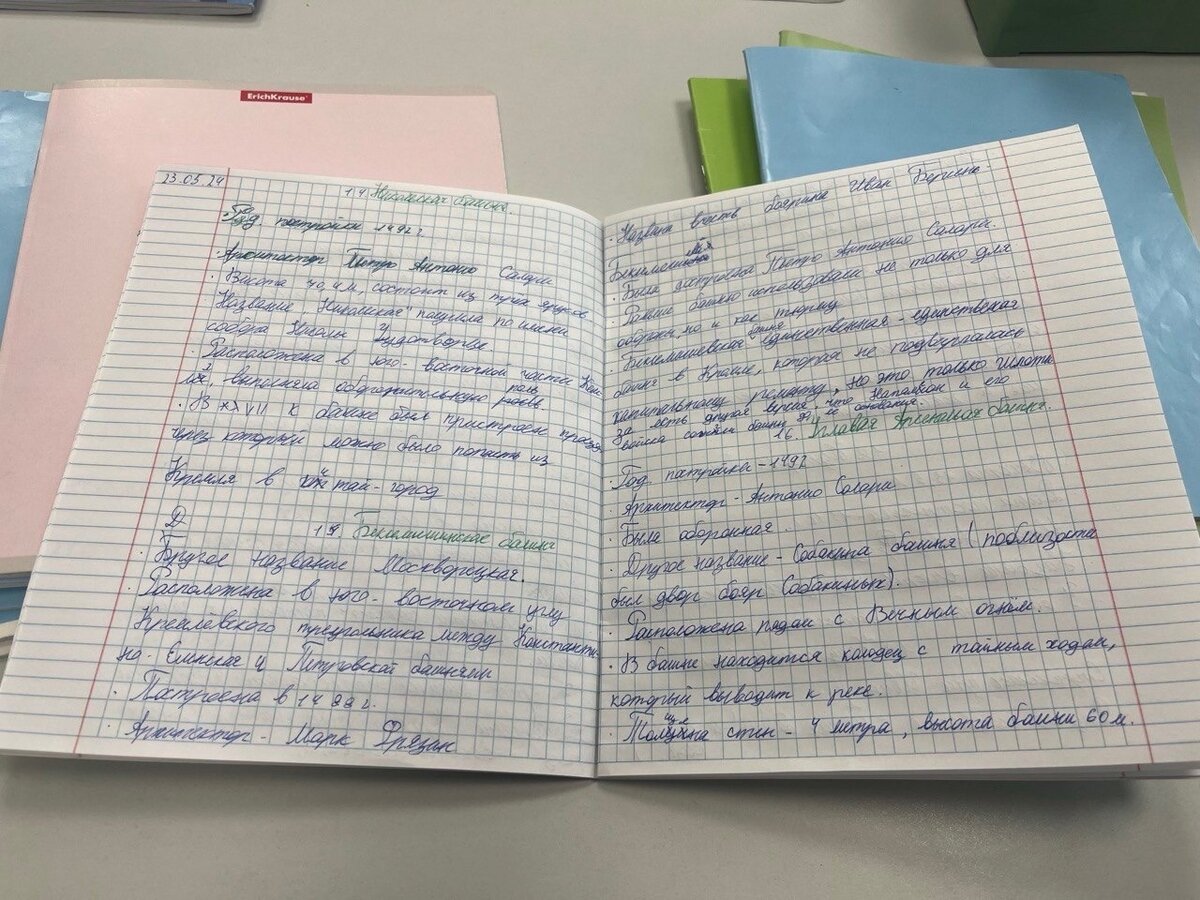 ErichKrause
23.05.24
14. Никольская башня.
· Год. постройки 1492 г
· Архитектор Петро Антонио Салари
· Высота 70,4 м, состоит из ярусов
Название "Никольская" получила по имени
собора Николы Чудотворца
· Расположена в юго-восточной части
, выполняла оборонительную роль
· В XVII к башне был пристроен
через который можно было попасть из
Кремля в Китай-город
15 Беклемишевская башня
· Другое название Москворецкая.
· Расположена в юго-восточном углу
Кремлёвского треугольника между Константи-
но-Еленской и Петровской башнями
· Построена в 1488 г.
· Архитектор - Марк Фрязин
· Названа в честь боярина Иван Берсень-
Беклемишев
· Была выпущена Пьетро Антонио Салари.
· Раньше башню использовали не только для
обороны, но и как тюрьму
· Беклемишевская башня единственная - единственая
башня в Кремле, которая не подвергалась
капитальному ремонту, но это только
За есть другое время, что Наполеон и его
войска башню
16. Угловая Арсенальная башня.
· Год постройки - 1492
· Архитектор - Антонио Солари
· Была оборонная.
· Другое название - Собакина башня (поблизости
был двор бояр Собакиных).
· Расположена рядом с Вечным огнём.
· В башне находится колодец с тайным ходом,
который выводит к реке.
· Толщина стен - 4 метра, высота башни 60 м.